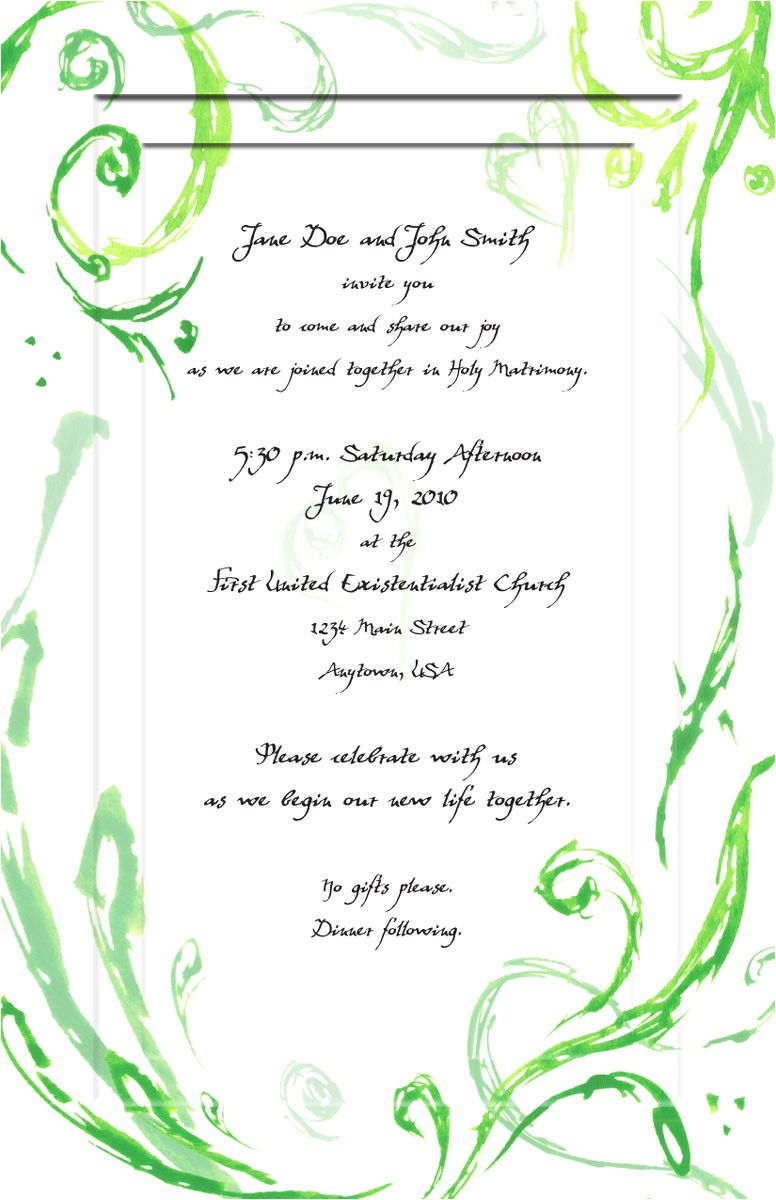 Jane Doe and John Smith
invite you
to come and share our joy
as we are joined together in Holy Matrimony.
5:30 p.m. Saturday Afternoon
June 19, 2010
at the
First United Existentialist Church
1234 Main Street
Anytown, USA
Please celebrate with us
as we begin our new life together.
No gifts please.
Dinner following.